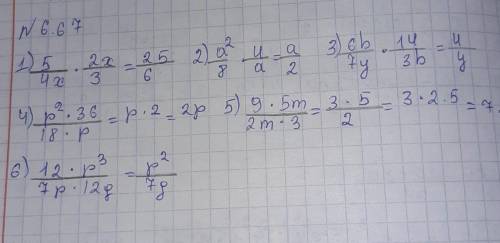 № 6.67
1) 5/4x · 2x/3 = 25/6 2) a²/8 · 4/a = a/2 3) 6b/7y · 14/3b = 4/y
4) p² · 36/18 · p = p · 2 = 2p 5) 9 · 5m/2m · 3 = 3 · 5/2 = 3 · 2.5 = 7.
6) 12 · p³/7p · 12g = p²/7g